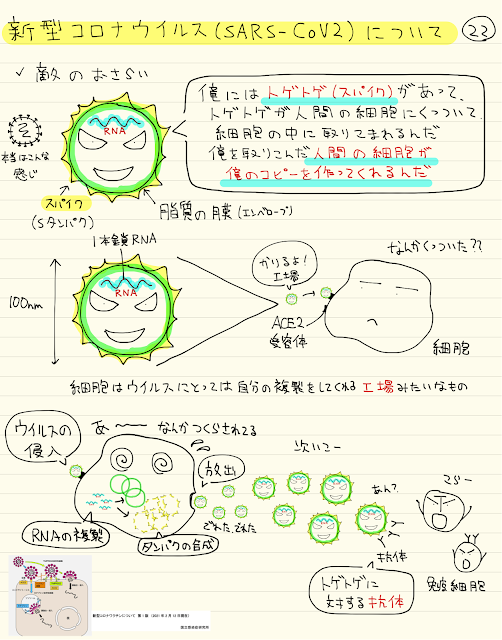 新型コロナウイルス(SARS-CoV2)について
23
✓ 敵のおさらい
RNA
本当はこんな
感じ
スパイク
(Sタンパク)
脂質の膜(エンベロープ)
俺にはトゲトゲ(スパイク)があって、
トゲトゲが人間の細胞にくっついて
細胞の中に取りこまれるんだ
俺を取りこんだ人間の細胞が
俺のコピーを作ってくれるんだ
1本鎖RNA
RNA
100nm
かりるよ!
工場
ACE2
受容体
なんかくっついた??
細胞
細胞はウイルスにとっては自分の複製をしてくれる工場みたいなもの
ウイルスの
侵入
あ〜〜 なんかつくらされてる
放出
でれた、でれた
RNAの複製
タンパクの合成
次いこー
あん?
抗体
トゲトゲに
対する抗体
こらー
免疫細胞
新型コロナワクチンについて 第1版(2021年2月13日現在)
国立感染症研究所